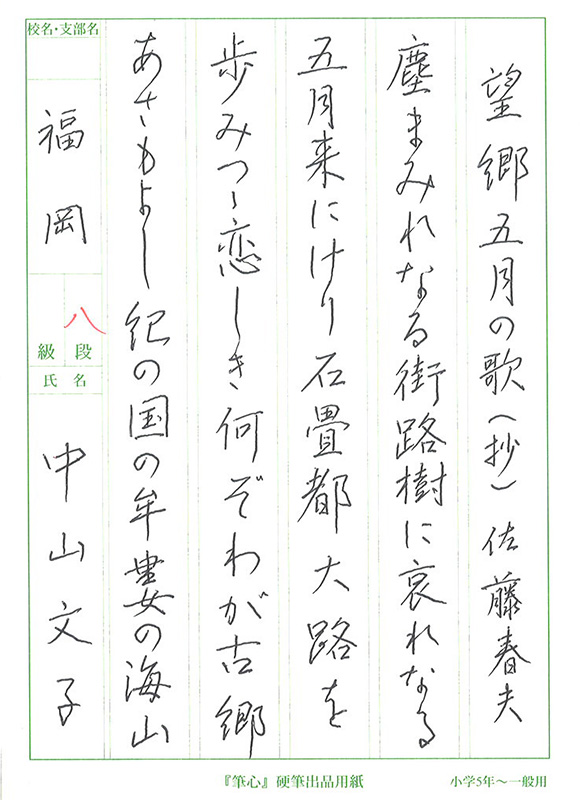 望郷五月の歌(抄) 佐藤春夫
塵まみれなる街路樹に哀れなる
五月来にけり石畳都大路を
歩みつゝ恋しき何ぞわが古郷
あさもよし紀の国の牟婁の海山
校名・支部名
福岡
八
級 段
氏 名
中山文子
『筆心』硬筆出品用紙
小学5年〜一般用